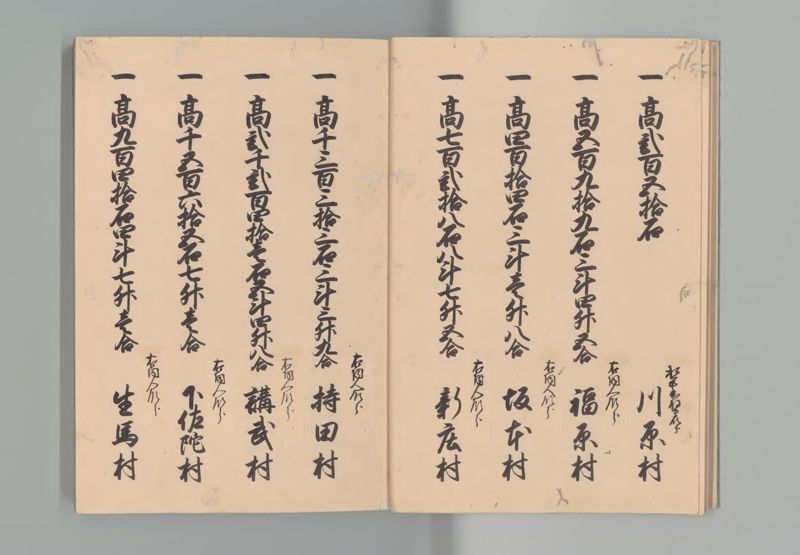 一 高弐百五拾石
川原村
一 高五百九拾九石三斗四升五合
右同人分
福原村
一 高四百拾四石三斗壱升八合
右同人分
坂本村
一 高七百弐拾八石八斗七升五合
右同人分
新庄村
一 高千三百三拾三石三斗三升九合
右同人分
持田村
一 高弐千弐百四拾壱石五斗四升八合
右同人分
講武村
一 高千五百六拾五石七升壱合
右同人分
下佐陀村
一 高九百四拾石四斗七升壱合
右同人分
生馬村